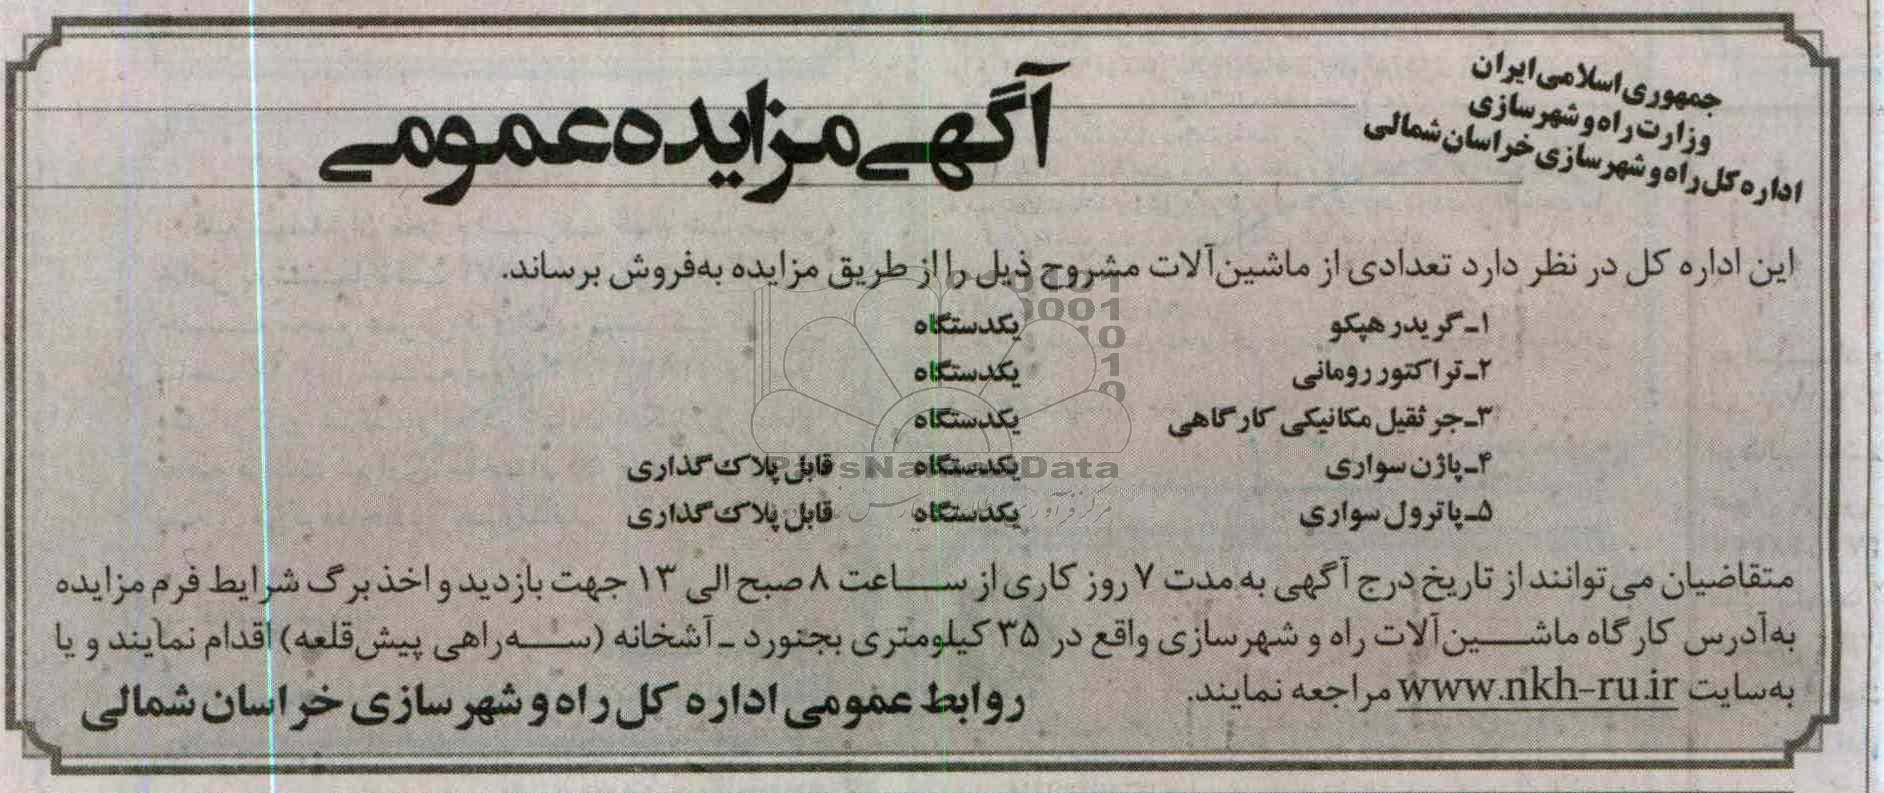 جمهوری اسلامی ایران
وزارت راه و شهرسازی
اداره کل راه و شهرسازی خراسان شمالی
آگهی مزایده عمومی
این اداره کل در نظر دارد تعدادی از ماشین‌آلات مشروح ذیل را از طریق مزایده به‌فروش برساند.
۱ـ گریدر هپکو یکدستگاه
۲ـ تراکتور رومانی یکدستگاه
۳ـ جرثقیل مکانیکی کارگاهی یکدستگاه
۴ـ پاژن سواری یکدستگاه قابل پلاک گذاری
۵ـ پاترول سواری یکدستگاه قابل پلاک گذاری
متقاضیان می‌توانند از تاریخ درج آگهی به مدت ۷ روز کاری از ساعت ۸ صبح الی ۱۳ جهت بازدید و اخذ برگ شرایط فرم مزایده
به‌آدرس کارگاه ماشین‌آلات راه و شهرسازی واقع در ۳۵ کیلومتری بجنورد ـ آشخانه (سه‌راهی پیش‌قلعه) اقدام نمایند و یا
به‌سایت www.nkh-ru.ir مراجعه نمایند.
روابط عمومی اداره کل راه و شهرسازی خراسان شمالی
ParsNamadData